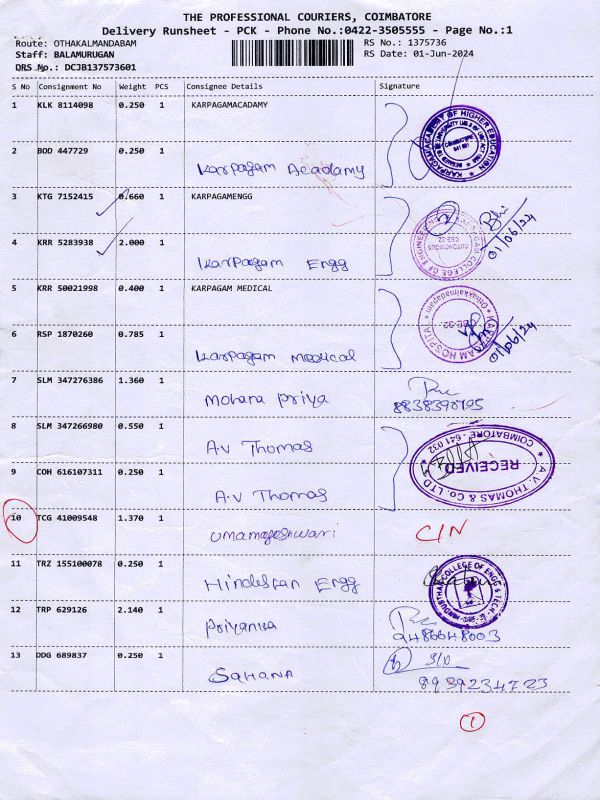 THE PROFESSIONAL COURIERS, COIMBATORE
Delivery Runsheet - PCK - Phone No.:0422-3505555 - Page No.:1
Route: OTHAKALMANDABAM RS No.: 1375736
Staff: BALAMURUGAN RS Date: 01-Jun-2024
DRS No.: DCJB137573601
S No Consignment No Weight PCS Consignee Details Signature
1 KLK 8114098 0.250 1 KARPAGAMACADAMY
KARPAGAM ACADEMY OF HIGHER EDUCATION
COIMBATORE
641 021
2 BOD 447729 0.250 1
Karpagam Acadamy
3 KTG 7152415 0.660 1 KARPAGAMENGG
01/06/24
KARPAGAM COLLEGE OF ENGINEERING
AUTONOMOUS
CBE-32
4 KRR 5283938 2.000 1
Karpagam Engg
5 KRR 50021998 0.400 1 KARPAGAM MEDICAL
KARPAGAM HOSPITAL
Othakkalmandapam
CBE-32
01/06/24
6 RSP 1870260 0.785 1
Karpagam Medical
7 SLM 347276386 1.360 1
Mohana Priya
8 SLM 347266980 0.550 1
A.V Thomas
A.V. THOMAS & Co. LTD
COIMBATORE - 641 032
RECEIVED
9 COH 616107311 0.250 1
A.V Thomas
10 TCG 41009548 1.370 1
Umamageshwari C/N
11 TRZ 155100078 0.250 1
Hindustan Engg
HINDUSTHAN COLLEGE OF ENGG & TECH
12 TRP 629126 2.140 1
Priyanka
9486648003
13 DDG 689837 0.250 1
SAHANA
S/O
8939234723
1